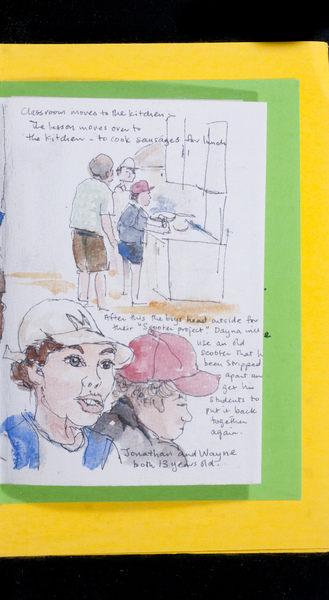 Classroom moves to the kitchen -
The lesson moves over to
the kitchen - to cook sausages for lunch
After this the boys head outside for
their "Scooter project" Dayna will
use an old
scooter that h
been stripped
apart an
get his
students to
put it back
together
again.
Jonathan and Wayne
both 13 years old.